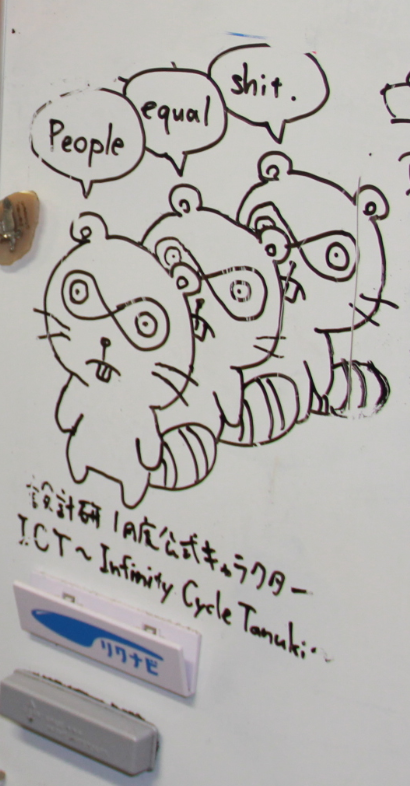 People
equal
shit.
設計研 1月度公式キャラクター
ICT～Infinity Cycle Tanuki～
リクナビ